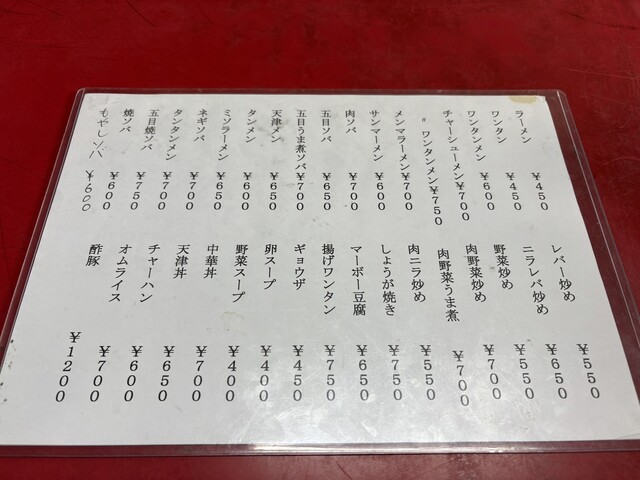 ラーメン ¥450
ワンタン ¥450
ワンタンメン ¥600
チャーシューメン ¥700
〃 ワンタンメン ¥750
メンマラーメン ¥700
サンマーメン ¥600
肉ソバ ¥700
五目ソバ ¥650
五目うま煮ソバ ¥700
天津メン ¥650
タンメン ¥600
ミソラーメン ¥650
ネギソバ ¥700
タンタンメン ¥700
五目焼ソバ ¥750
焼ソバ ¥600
もやしソバ ¥600
レバー炒め ¥550
ニラレバ炒め ¥650
野菜炒め ¥550
肉野菜炒め ¥700
肉野菜うま煮 ¥700
肉ニラ炒め ¥550
しょうが焼き ¥750
マーボー豆腐 ¥650
揚げワンタン ¥750
ギョウザ ¥450
卵スープ ¥400
野菜スープ ¥400
中華丼 ¥700
天津丼 ¥650
チャーハン ¥600
オムライス ¥700
酢豚 ¥1200